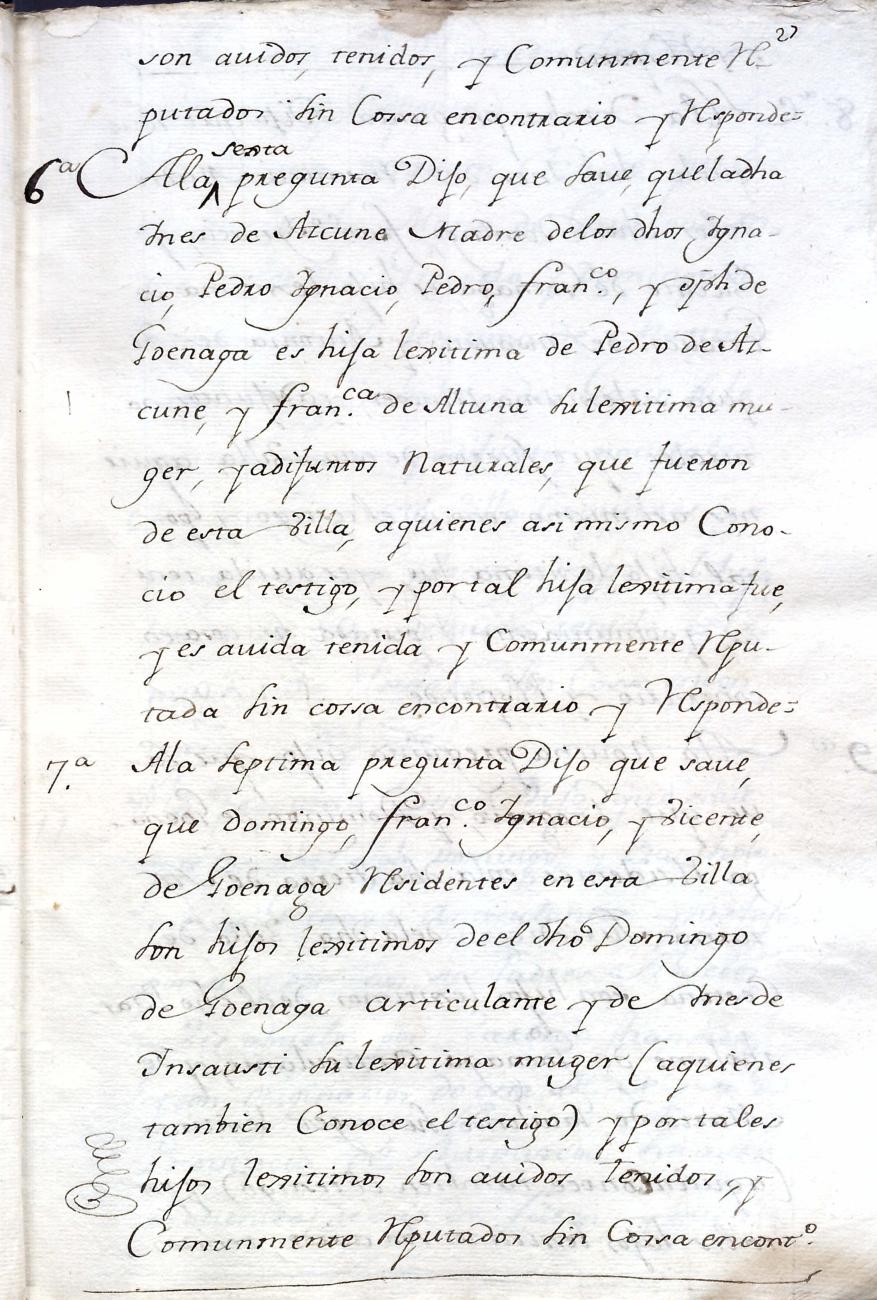 27
son auidos, tenidos, y Comunmente Re-
putados sin Cossa encontrario y Responde=
6ª Ala sexta pregunta Dijo, que save, queladha
Ines de Azcune Madre delos dhos Igna-
cio, Pedro Ignacio, Pedro, fran.co, y Joseph de
Goenaga es hija lexitima de Pedro de Az-
cune, y fran.ca de Altuna su lexitima mu-
ger, ya difuntos Naturales, que fueron
de esta Villa, aquienes asi mismo Cono-
cio el testigo, y por tal hija lexitima fue,
y es auida tenida y Comunmente Repu-
tada sin cossa encontrario y Responde=
7.ª Ala septima pregunta Dijo que save,
que Domingo, fran.co Ignacio, y Vicente,
de Goenaga Residentes en esta Villa
son hijos lexitimos de el dho Domingo
de Goenaga articulante y de Ines de
Insausti su lexitima muger (aquienes
tambien Conoce el testigo) y por tales
hijos lexitimos son auidos tenidos, y
Comunmente Reputados sin Cossa encontº.